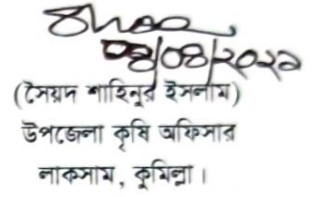 ০৪/০৪/২০২২
(সৈয়দ শাহিনুর ইসলাম)
উপজেলা কৃষি অফিসার
লাকসাম, কুমিল্লা।